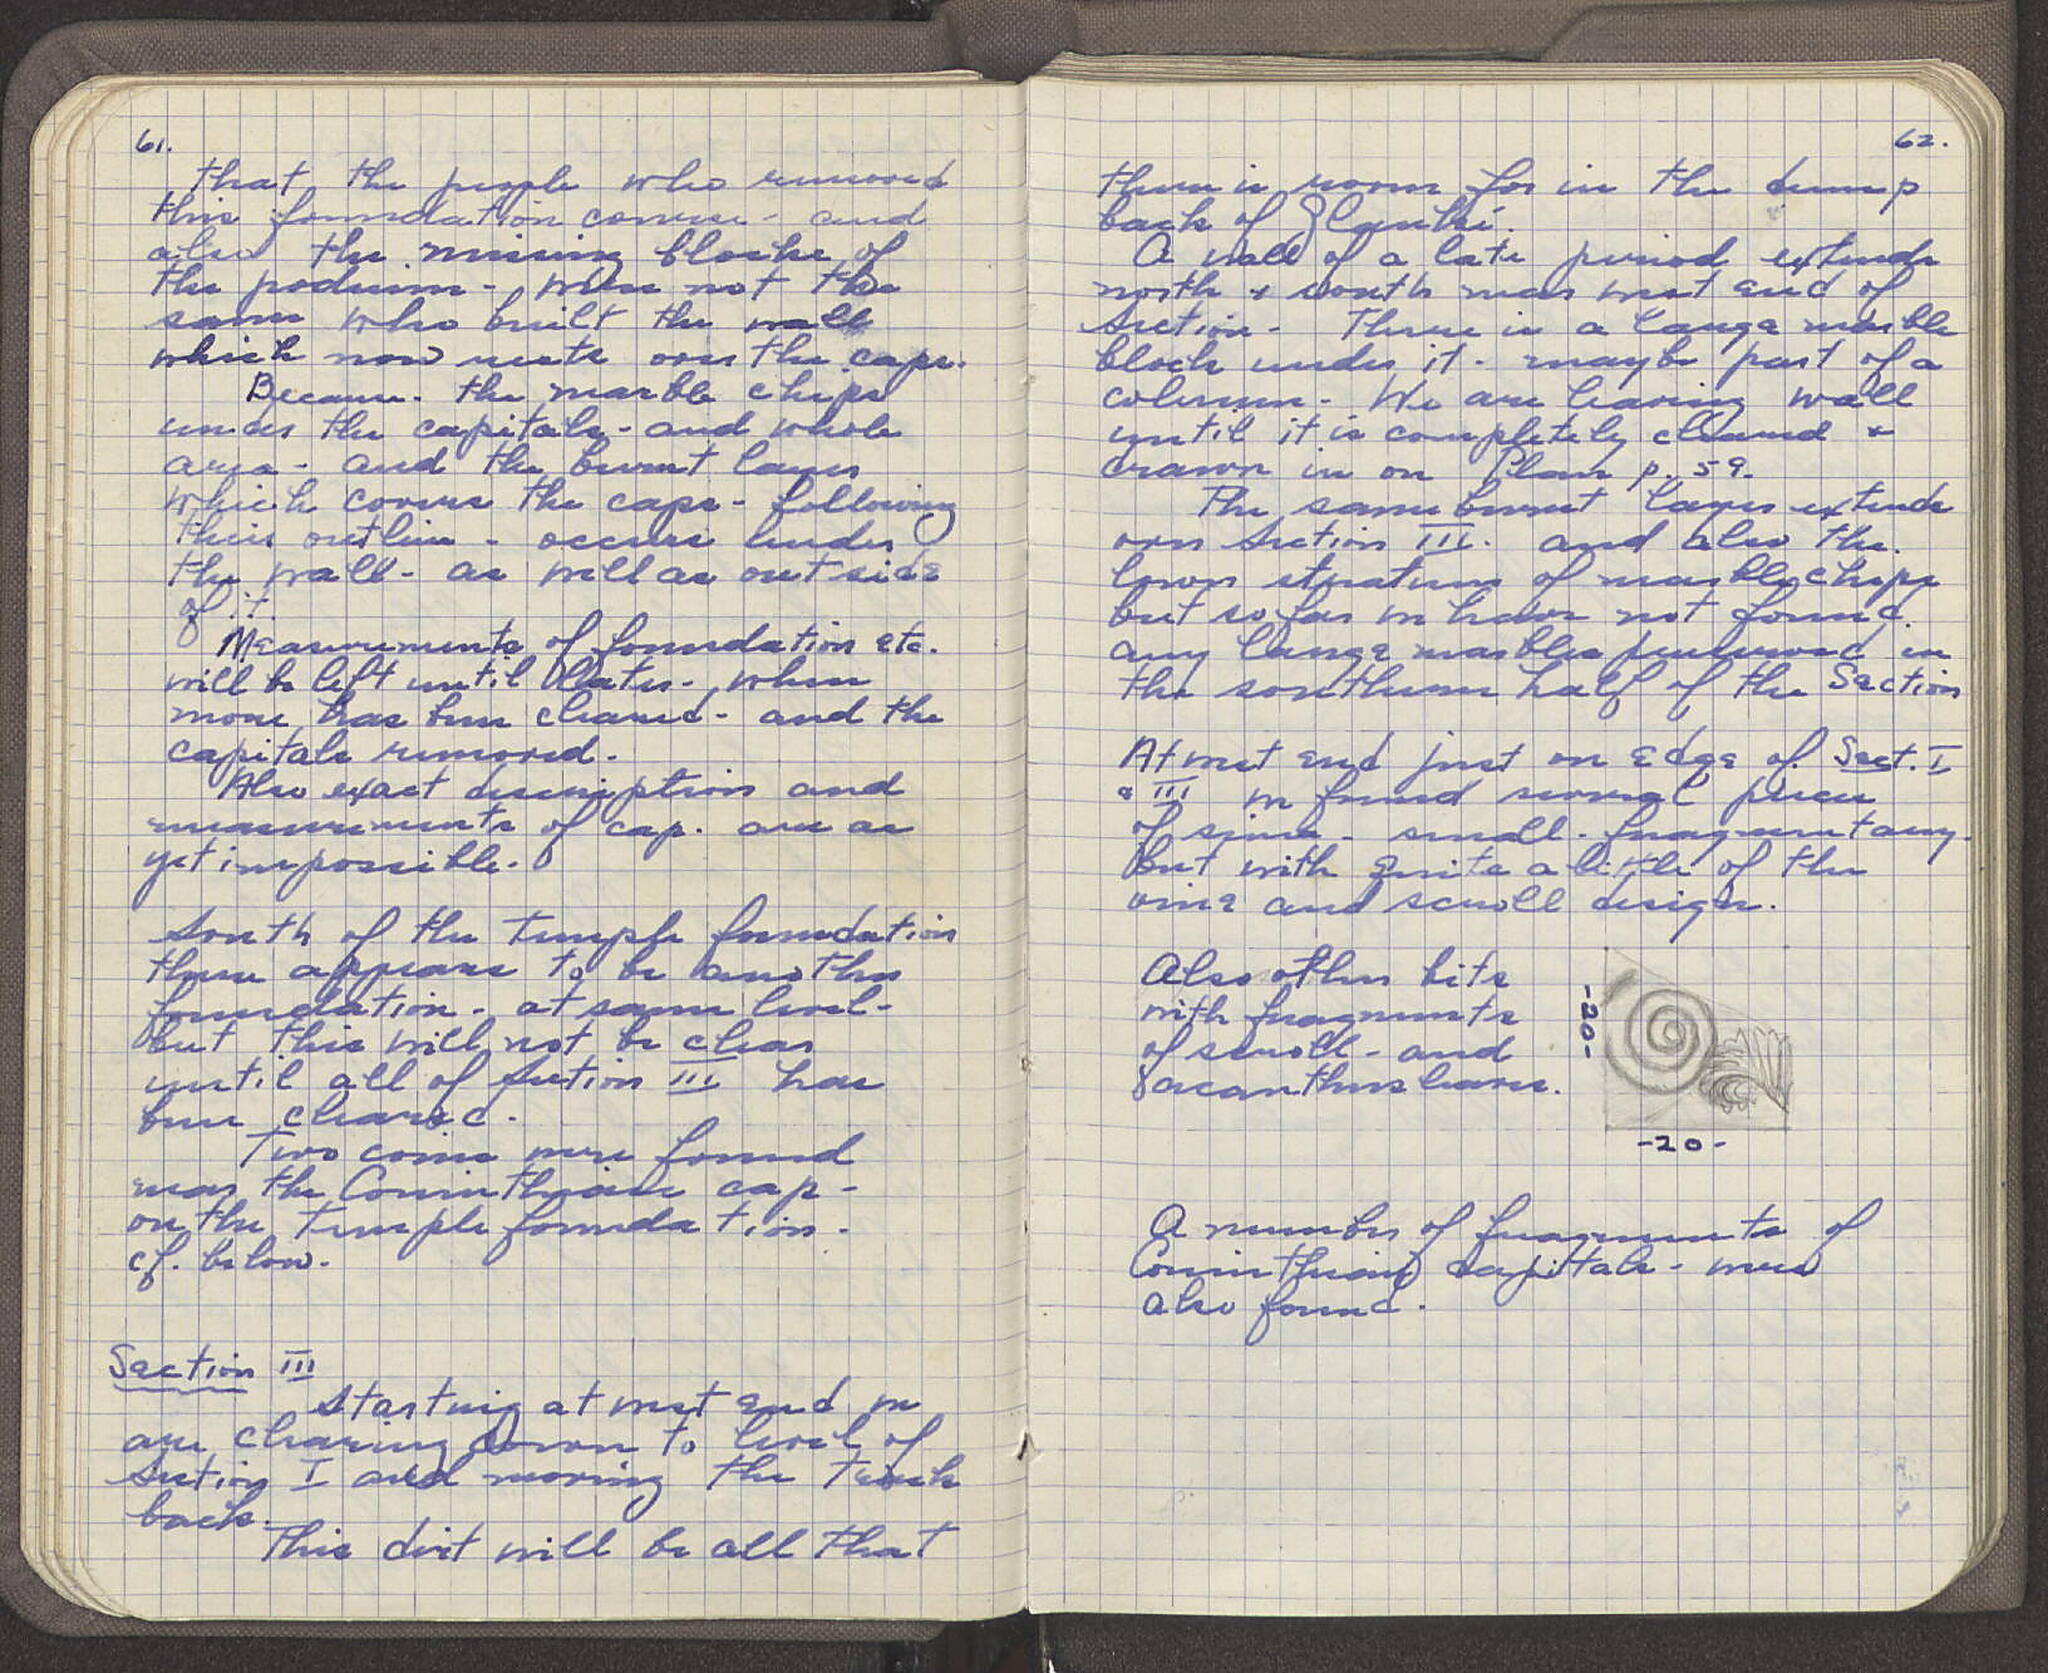 61.
that the people who removed
this foundation course - and
also the missing blocks of
the podium - were not the
same who built the wall
which now rests over the caps.
Because - the marble chips
under the capitals - and whole
area - and the burnt layer
which covers the caps - following
their outline - occurs under
the wall - as well as outside
of it
Measurements of foundation etc.
will be left until later - when
more has been cleared - and the
capitals removed.
Also exact description and
measurements of cap. are as
yet impossible.
South of the Temple foundation
there appears to be another
foundation - at same level -
but this will not be clear
until all of Section III has
been cleared.
Two coins were found
near the Corinthian cap -
on the Temple foundation -
cf. below.
Section III
Starting at west end we
are clearing down to level of
Section I and moving the track
back.
This dirt will be all that
62.
there is room for in the dump
back of Glauke.
A wall of a late period extends
north & south near west end of
Section - There is a large marble
block under it - maybe part of a
column - We are leaving wall
until it is completely cleared &
drawn in on Plan p. 59.
The same burnt layer extends
over Section III. and also the
lower stratum of marble chips
but so far we have not found
any large marbles preserved in
the southern half of the Section
At west end just on edge of Sect. I
& III we found several pieces
of sima - small - fragmentary
but with quite a little of the
vine and scroll design.
Also other bits
with fragments
of scroll - and
acanthus leaves.
-20-
-20-
A number of fragments of
Corinthian capitals - were
also found.